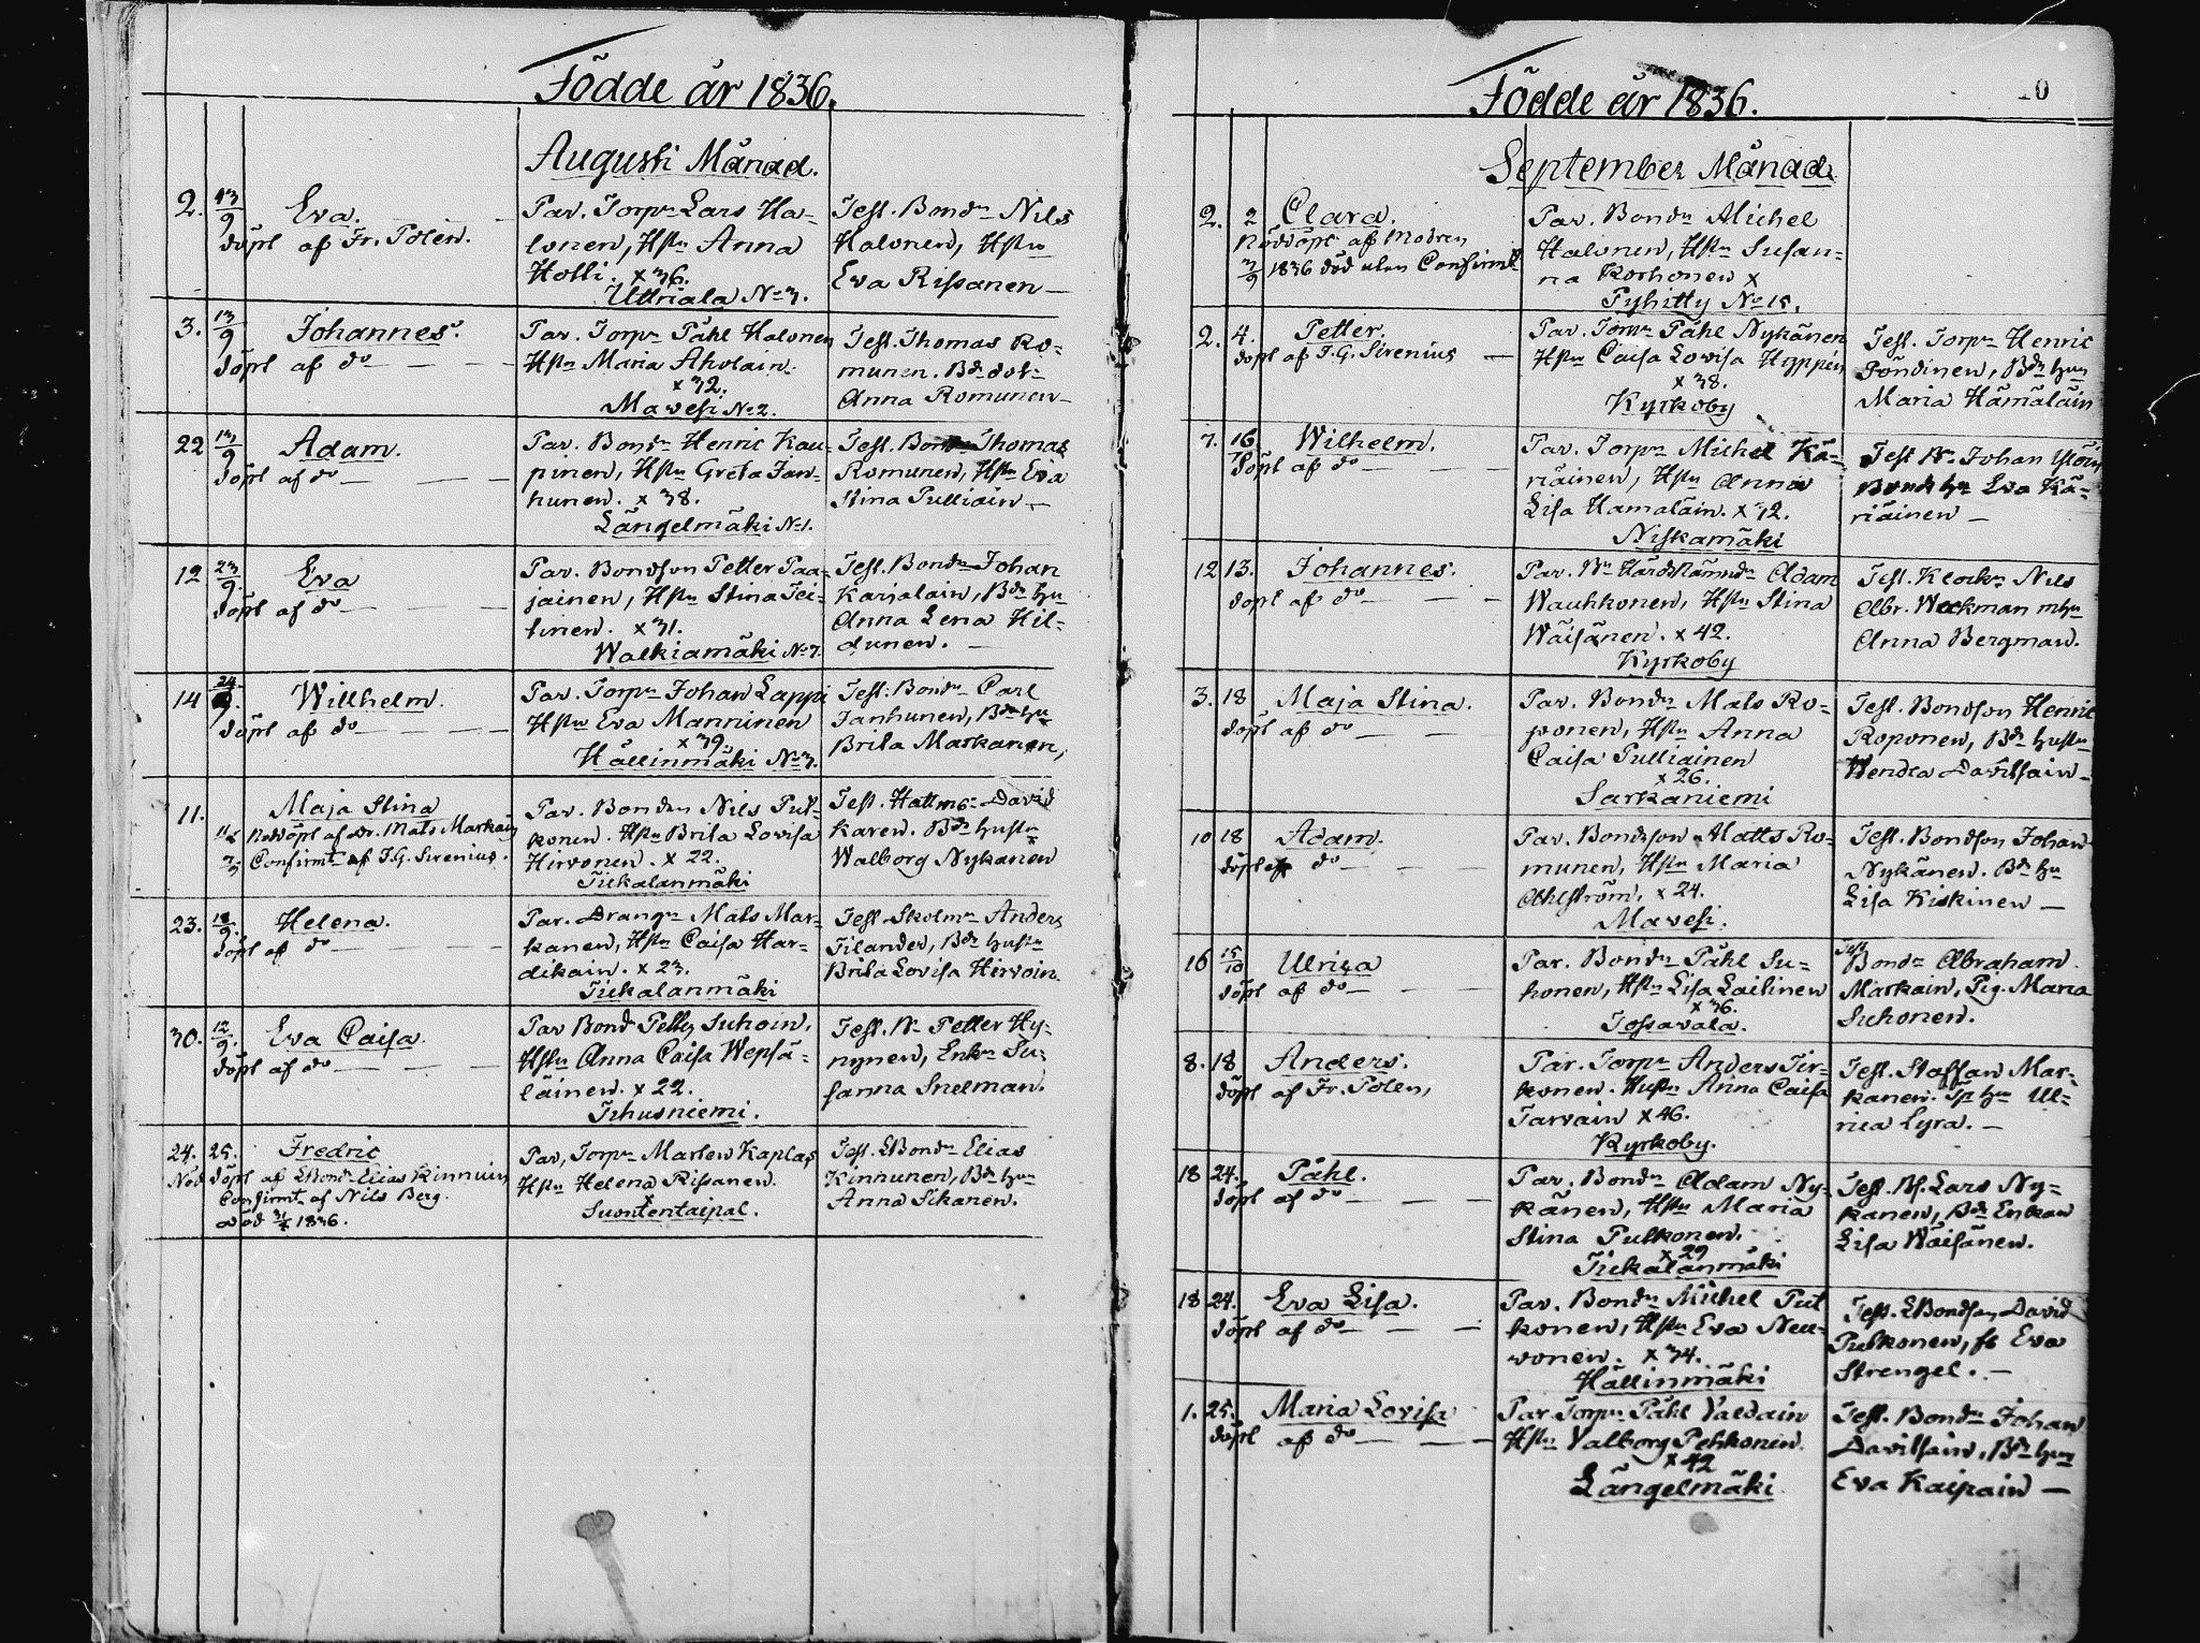 Födde år 1836.
Augusti Månad.
2. 13/9 Eva.
döpt af Fr. Polén.
Par. Torpr Lars Ha=
lonen, Hstu Anna
Holli. x 36.
Uttriala No 3.
Test. Bondn Nils
Halonen, Hstu
Eva Rissanen —
3. 13/9 Johannes.
döpt af do — — —
Par. Torpr Påhl Halonen
Hstu Maria Aholain.
x 32.
Mavesi No 2.
Test. Thomas Ro=
munen. Bdr dotr
Anna Romunen —
22 13/9 Adam.
döpt af do — — —
Par. Bondn Henric Kau=
pinen, Hstu Greta Jan=
hunen. x 38.
Längelmäki No 1.
Test. Bondn Thomas
Romunen, Hstu Eva
Stina Pulliain —
12 23/9 Eva
döpt af do — — —
Par. Bondson Petter Paa=
jainen, Hstu Stina Tei=
tinen. x 31.
Walkiamäki No 7.
Test. Bondn Johan
Karjalain, Bdn hu
Anna Lena Hil=
dunen. —
14 24/9. Willhelm.
döpt af do — — —
Par. Torpr Johan Lappi
Hstu Eva Manninen
x 39.
Hällinmäki No 3.
Test. Bondn Carl
Janhunen, Bdn hu
Brita Markanen,
11. Maja Stina
Nöddöpt af Dr. Mats Markain
Confirmt af J.G. Sirenius.
Par. Bonden Nils Pul=
konen. Hstu Brita Lovisa
Hirvonen. x 22.
Tiekalanmäki
Test. Hattms David
Karen. Bdn hustu
Walborg Nykänen
23. 18/9. Helena.
döpt af do — — —
Par. Drängn Mats Mar=
kanen, Hstu Caisa Har=
dikain. x 23.
Tiekalanmäki
Test. Skolmr Anders
Tilander, Bdn hustu
Brita Lovisa Hirvoin
30. 12/9. Eva Caisa.
döpt af do — — —
Par Bond Petter Suhoin,
Hstu Anna Caisa Wepsä=
läinen. x 22.
Tihusniemi.
Test. Nn Petter Hy=
nynen, Enkn Su=
sanna Snelman.
24. 25. Fredric
Nöd döpt af LBondn Elias Kinnuin
Confirmt af Nils Berg.
död 1836.
Par, Torpr Marten Kaplas
Hstu Helena Rissanen.
x
Suontentaipal.
Test. LBondn Elias
Kinnunen, Bdn hu
Anna Sikanen.
Födde år 1836.
0
September Månad.
2. 2 Clara.
Nöddöpt af Modren
3/9 1836 död utan Confirmt
Par. Bondn Michel
Halonen, Hstu Susan=
na Korhonen x
Pyhitty No 15.
2. 4. Petter.
döpt af J.G. Sirenius —
Par. Torpr Påhl Nykänen
Hstu Caisa Lovisa Hyppön
x 38.
Kyrkoby
Test. Torpr Henric
Pöndinen, Bdn hu
Maria Hämäläin
7. 16/9 Wilhelm.
döpt af do — — —
Par. Torpr Michel Kä=
riäinen, Hstu Anna
Lisa Hamäläin. x 32.
Niskamäki
Test Nn Johan
Bondn hu Eva Kä=
riäinen —
12 13. Johannes.
döpt af do — — —
Par. Nn Häradsnämndn Adam
Wauhkonen, Hstu Stina
Wäisänen. x 42.
Kyrkoby
Test. Klockn Nils
Abr. Weckman m hu
Anna Bergman.
3. 18 Maja Stina.
döpt af do — —
Par. Bondn Mats Ro=
ponen, Hstu Anna
Caisa Pulliainen
x 26.
Sarkaniemi
Test. Bondson Henric
Roponen, Bdn hustu
Hendca Davitsain —
10 18 Adam.
döpt af do — — —
Par. Bondson Matts Ro=
munen, Hstu Maria
Ahlström, x 24.
Mavesi.
Test. Bondson Johan
Nykänen. Bdn hu
Lisa Kiskinen —
16 15/10 Ulrica
döpt af do — — —
Par. Bondn Påhl Su=
honen, Hstu Lisa Laitinen
x 36.
Tossavala.
Test
Bondn Abraham
Markain, Pig. Maria
Suhonen.
8. 18 Anders.
döpt af Fr. Polen,
Par. Torpr Anders Tir=
konen. Hustu Anna Caisa
Tarvain x 46.
Kyrkoby.
Test. Staffan Mar=
kanen. Tp hu Ul=
rica Lyra. —
18 24. Påhl.
döpt af do — — —
Par. Bondn Adam Ny=
känen, Hstu Maria
Stina Pulkonen.
x 29
Tiekalanmäki
Test. Bf. Lars Ny=
kanen, Bdn Enkan
Lisa Wäisänen.
18 24. Eva Lisa.
döpt af do — — —
Par. Bondn Michel Pul
konen, Hstu Eva Neu=
vonen. x 34.
Hällinmäki
Test. LBondson David
Pulkonen, fl Eva
Strengel. —
1. 25. Maria Lovisa
döpt af do — — —
Par Torpr Påhl Valdain
Hstu Valborg Pehkonen.
x 42
Längelmäki
Test. Bondn Johan
Davitsain, Bdn hu
Eva Kaipain —